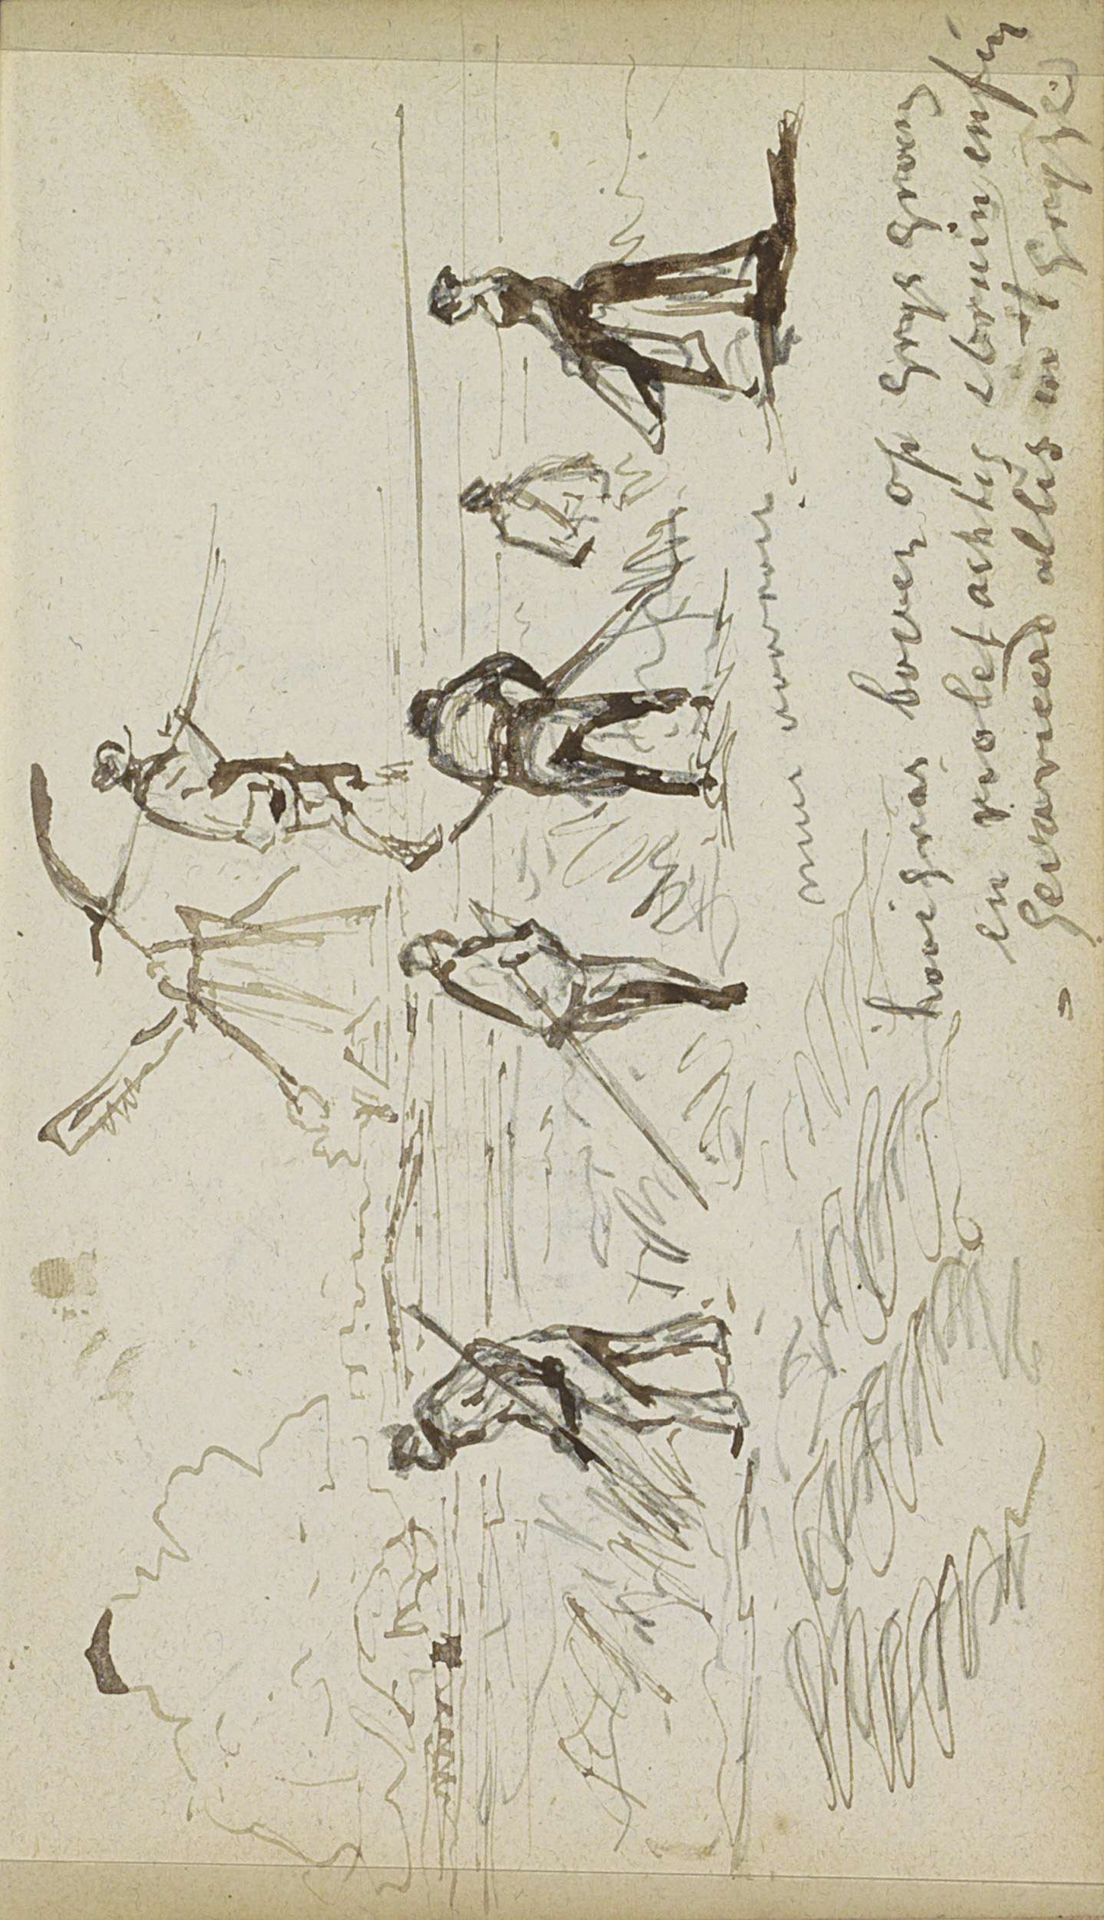 hooigras boven op grys groen
en violet achtig bruin enfin
gevarieerd alles in 't gryze